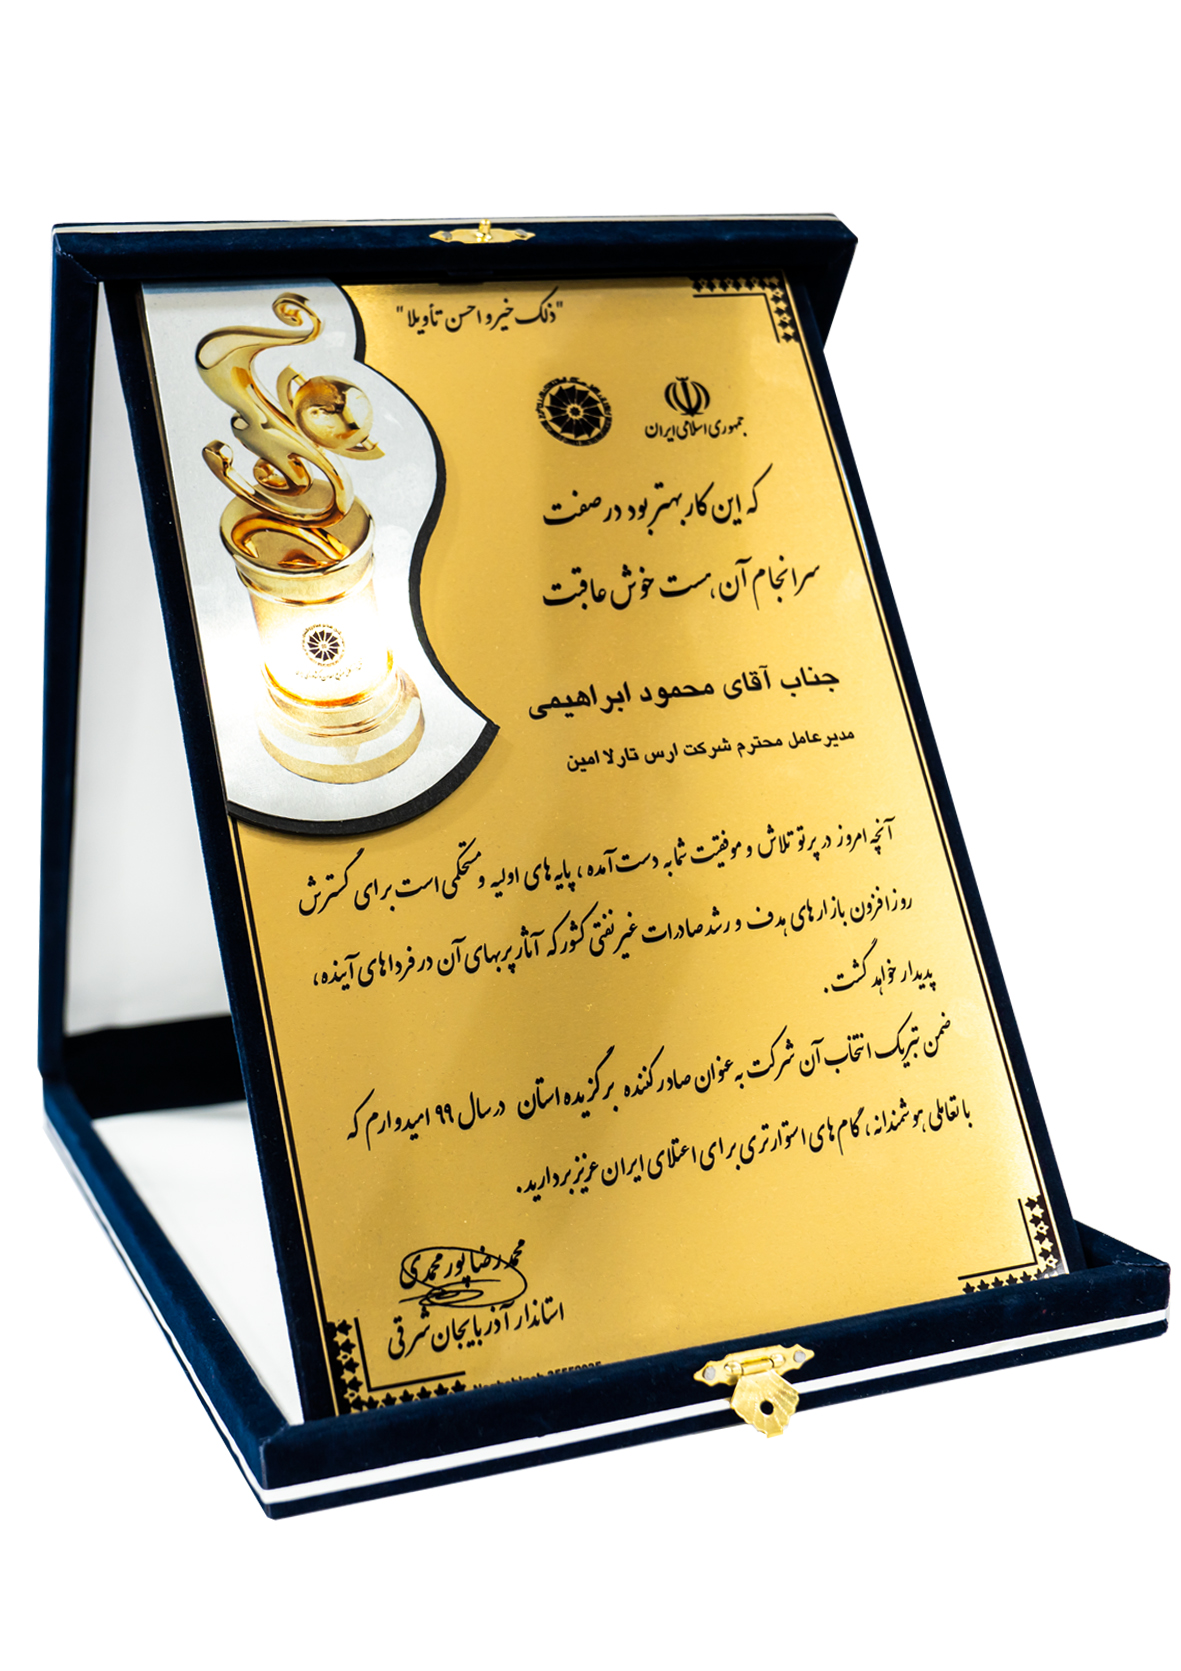 "ذلک خیر و احسن تأویلا"
جمهوری اسلامی ایران
که این کار بهتر بود در صفت
سرانجام آن هست خوش عاقبت
جناب آقای محمود ابراهیمی
مدیرعامل محترم شرکت ارس تارلا امین
آنچه امروز در پرتو تلاش و موفقیت شما به دست آمده ، پایه های اولیه و مستحکمی است برای گسترش
روزافزون بازارهای هدف و رشد صادرات غیرنفتی کشور که آثار پربهای آن در فرداهای آینده ،
پدیدار خواهد گشت .
ضمن تبریک انتخاب آن شرکت به عنوان صادرکننده برگزیده استان در سال ۹۹ امیدوارم که
با تعاملی هوشمندانه ، گام های استوارتری برای اعتلای ایران عزیز بردارید .
محمدرضا پورمحمدی
استاندار آذربایجان شرقی